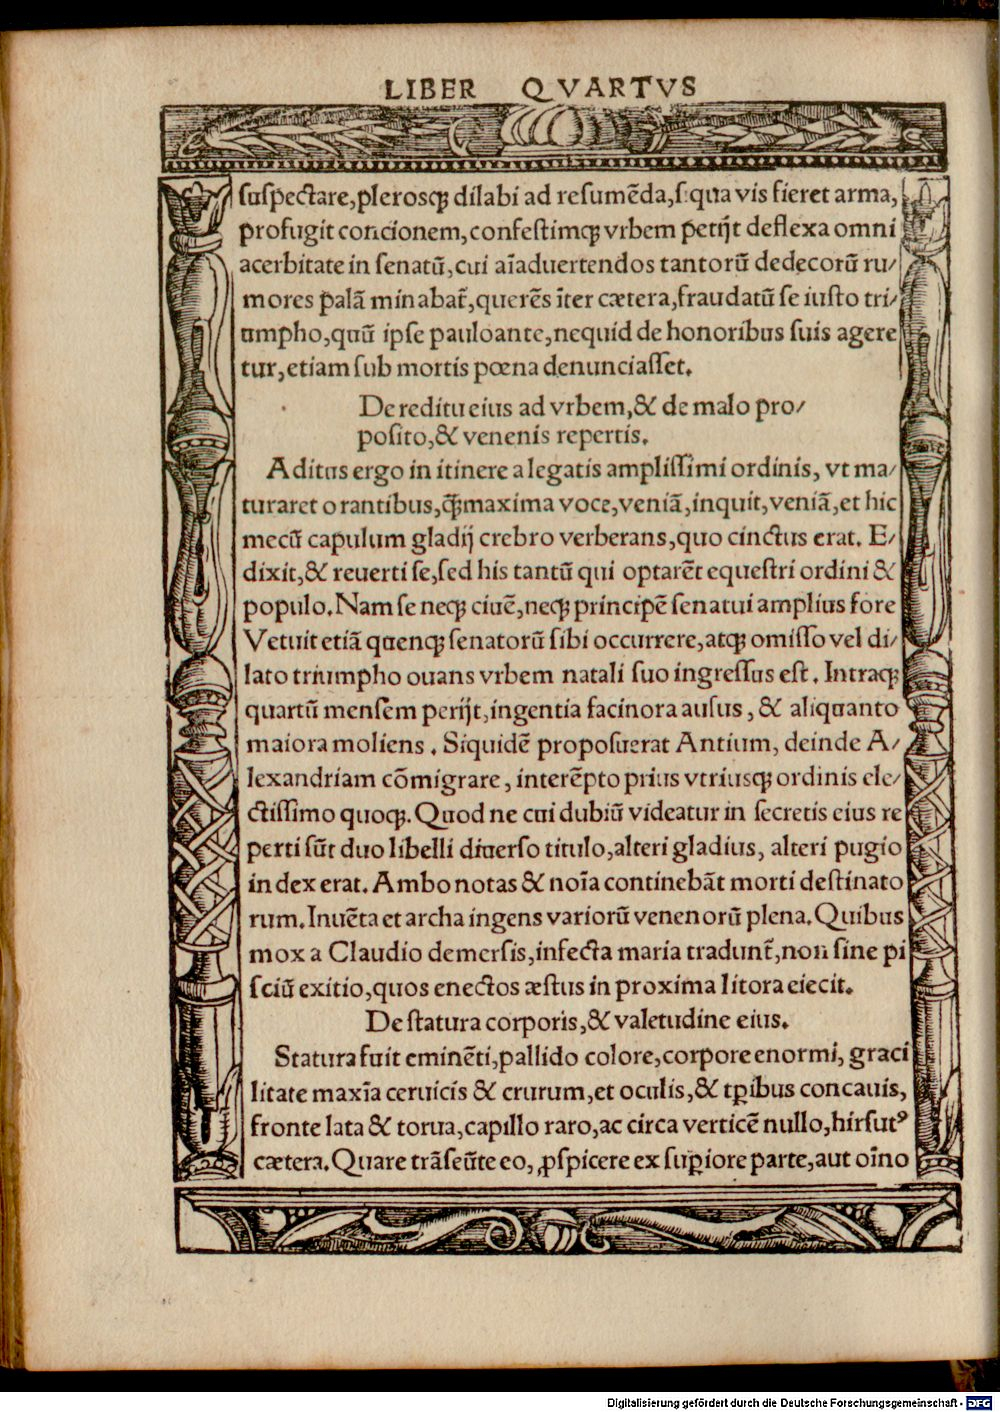 LIBER QVARTVS
suspectare,plerosqꝫ dilabi ad resumẽda,siqua vis fieret arma,
profugit concionem,confestimqꝫ vrbem petijt deflexa omni
acerbitate in senatũ,cui aĩaduertendos tantorũ dedecorũ ru/
mores palã minabat̃,querẽs ĩter cætera,fraudatũ se iusto tri/
umpho,quũ ipse pauloante,nequid de honoribus suis agere
tur,etiam sub mortis pœna denunciasset.
De reditu eius ad vrbem,& de malo pro/
posito,& venenis repertis.
Aditus ergo in itinere a legatis amplissimi ordinis, vt ma/
turaret orantibus,q̃ꝫmaxima voce,veniã,inquit,veniã,et hic
mecũ capulum gladij crebro verberans,quo cinctus erat. E/
dixit,& reuerti se,sed his tantũ qui optarẽt equestri ordini &
populo.Nam se neqꝫ ciuẽ,neqꝫ principẽ senatui amplius fore
Vetuit etiã quenqꝫ senatorũ sibi occurrere,atqꝫ omisso vel di/
lato triumpho ouans vrbem natali suo ingressus est. Intraqꝫ
quartũ mensem perijt,ingentia facinora ausus, & aliquanto
maiora moliens. Siquidẽ proposuerat Antium, deinde A/
lexandriam cõmigrare, interẽpto prius vtriusqꝫ ordinis ele/
ctissimo quoqꝫ.Quod ne cui dubiũ videatur in secretis eius re
perti sũt duo libelli diuerso titulo,alteri gladius, alteri pugio
index erat.Ambo notas & noĩa continebãt morti destinato
rum.Inuẽta et archa ingens variorũ venenorũ plena.Quibus
mox a Claudio demersis,infecta maria tradunt̃,non sine pi
sciũ exitio,quos enectos æstus in proxima litora eiecit.
De statura corporis,& valetudine eius.
Statura fuit eminẽti,pallido colore,corpore enormi, graci
litate maxĩa ceruicis & crurum,et oculis,& tꝑibus concauis,
fronte lata & torua,capillo raro,ac circa verticẽ nullo,hirsutꝰ
cætera.Quare trãseũte eo, ꝓspicere ex suꝑiore parte,aut oĩno
Digitalisierung gefördert durch die Deutsche Forschungsgemeinschaft - DFG